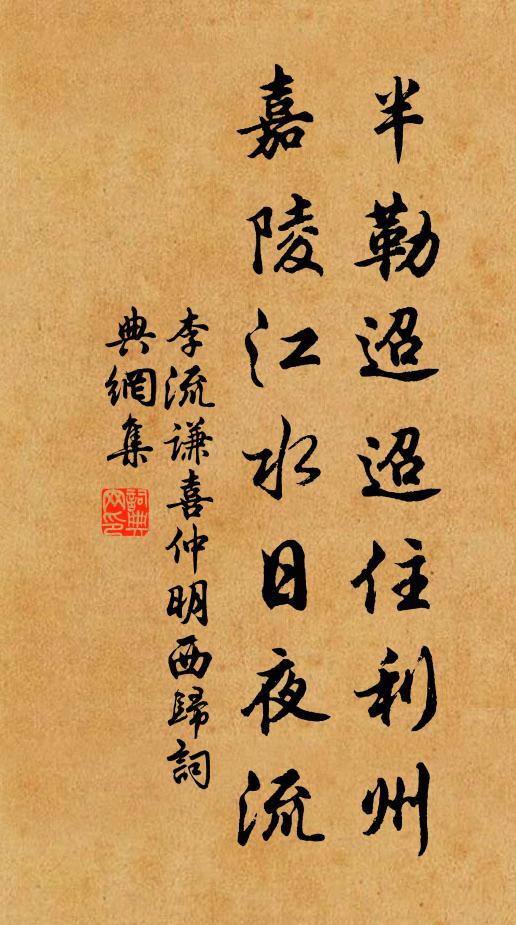 半勒迢迢住利州
嘉陵江水日夜流
李流谦喜仲明西歸詞
典網集
詞典網印